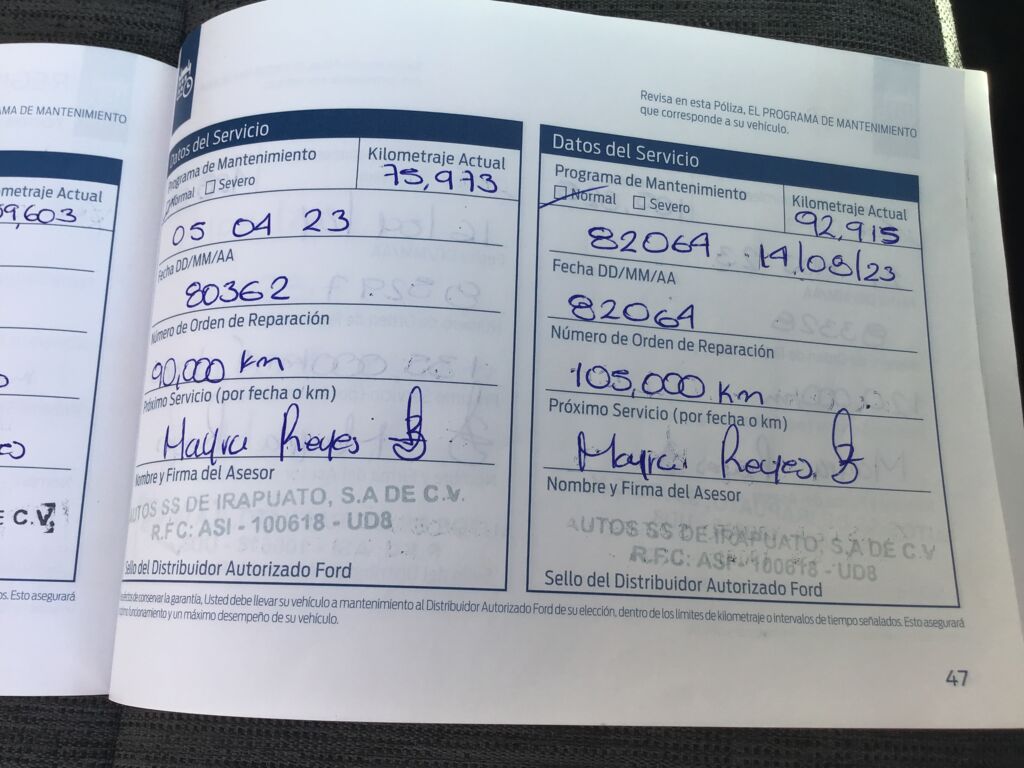 AMA DE MANTENIMIENTO
ometraje Actual
59,603
E C.V.
os. Esto asegurará
Datos del Servicio
Programa de Mantenimiento
Normal Severo
Kilometraje Actual
75,973
05 04 23
Fecha DD/MM/AA
80362
Número de Orden de Reparación
90,000 km
Próximo Servicio (por fecha o km)
Mayra Reyes
Nombre y Firma del Asesor
AUTOS SS DE IRAPUATO, S.A DE C.V.
R.F.C: ASI - 100618 - UD8
Sello del Distribuidor Autorizado Ford
Revisa en esta Póliza, EL PROGRAMA DE MANTENIMIENTO
que corresponde a su vehículo.
Datos del Servicio
Programa de Mantenimiento
Normal Severo
Kilometraje Actual
92,915
82064 14/08/23
Fecha DD/MM/AA
82064
Número de Orden de Reparación
105,000 km
Próximo Servicio (por fecha o km)
Mayra Reyes
Nombre y Firma del Asesor
AUTOS SS DE IRAPUATO, S,A DE C.V
R.F.C: ASI - 100618 - UD8
Sello del Distribuidor Autorizado Ford
efectos de conservar la garantía, Usted debe llevar su vehículo a mantenimiento al Distribuidor Autorizado Ford de su elección, dentro de los límites de kilometraje o intervalos de tiempo señalados. Esto asegurará
funcionamiento y un máximo desempeño de su vehículo.
47